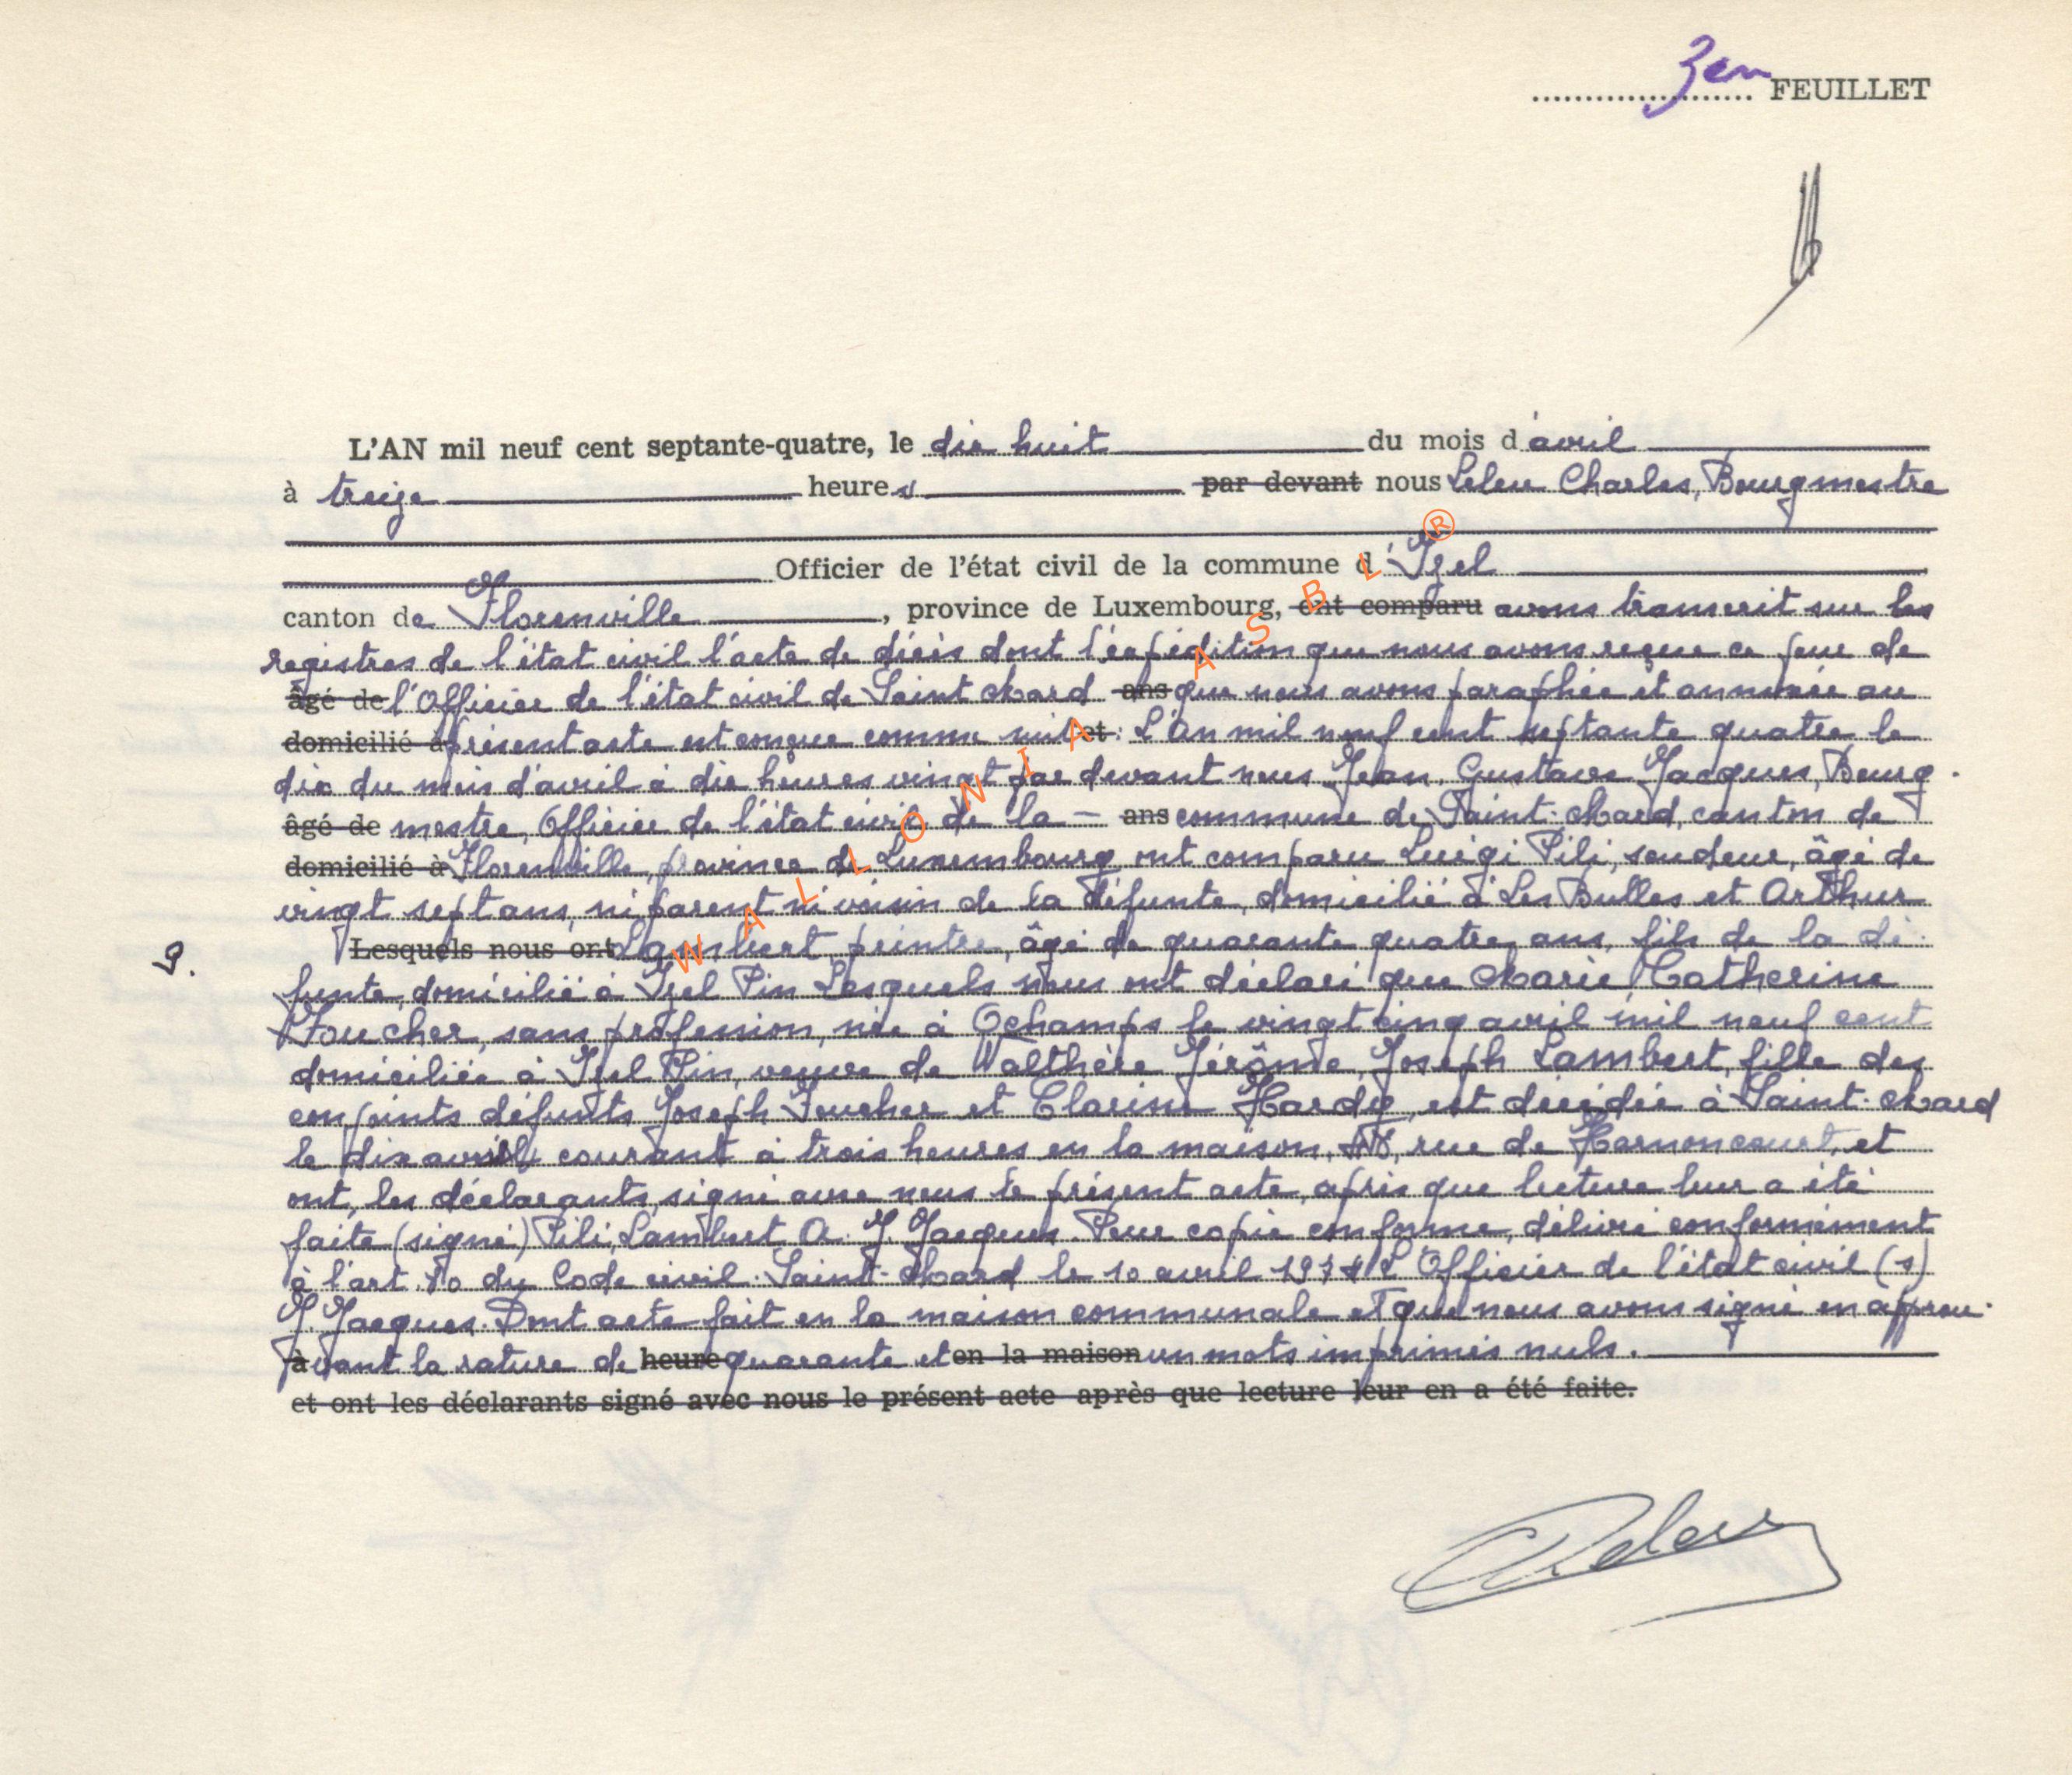 3em FEUILLET
L'AN mil neuf cent septante-quatre, le dix huit du mois d'avril
à treize heures par devant nous Leleu Charles, Bourgmestre
Officier de l'état civil de la commune d'Izel
canton de Florenville, province de Luxembourg, ont comparu avons transcrit sur les
registres de l'état civil l'acte de décès dont l'expédition que nous avons reçue ce jour de
âgé de l'Officier de l'état civil de Saint Mard ans que nous avons paraphée et annexée au
domicilié à présent acte est conçue comme suit et : L'An mil neuf cent septante quatre le
dix du mois d'avril à dix heures vingt par devant nous Jean, Gustave Jacques, Bourg-
âgé de mestre, Officier de l'état civil de la – ans commune de Saint-Mard, canton de
domicilié à Florenville, province de Luxembourg ont comparu Luigi Pili, soudeur, âgé de
vingt sept ans, ni parent ni voisin de la défunte, domicilié à Les Bulles et Arthur
Lesquels nous ont Lambert peintre, âgé de quarante quatre ans, fils de la dé-
9.
funte, domicilié à Izel Pin Lesquels nous ont déclaré que Marie Catherine
Foucher, sans profession, née à Ochamps le vingt cinq avril mil neuf cent
domiciliée à Izel Pin, veuve de Walthère Jérôme, Joseph Lambert, fille des
conjoints défunts Joseph Foucher et Clarine Hardy, est décédée à Saint-Mard
le dix avril courant à trois heures en la maison, rue de Harnoncourt, et
ont, les déclarants, signé avec nous le présent acte, après que lecture leur a été
faite (signé) Pili, Lambert A. J. Jacques. Pour copie conforme, délivré conformément
à l'art. 80 du Code civil. Saint-Mard le 10 avril 1974 L'Officier de l'état civil (s)
J. Jacques. Dont acte fait en la maison communale et que nous avons signé en approu-
à vant la rature de heure quarante et en la maison un mots imprimés nuls.
et ont les déclarants signé avec nous le présent acte après que lecture leur en a été faite.
CLeleu
WALLONIA ASBL ®